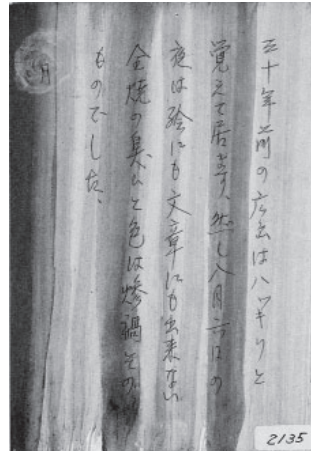 三十年前の広島はハツキりと
覚えて居ます、然し八月六日の
夜は絵にも文章にも出来ない
全焼の臭いと色は惨禍その
ものでした、
2135